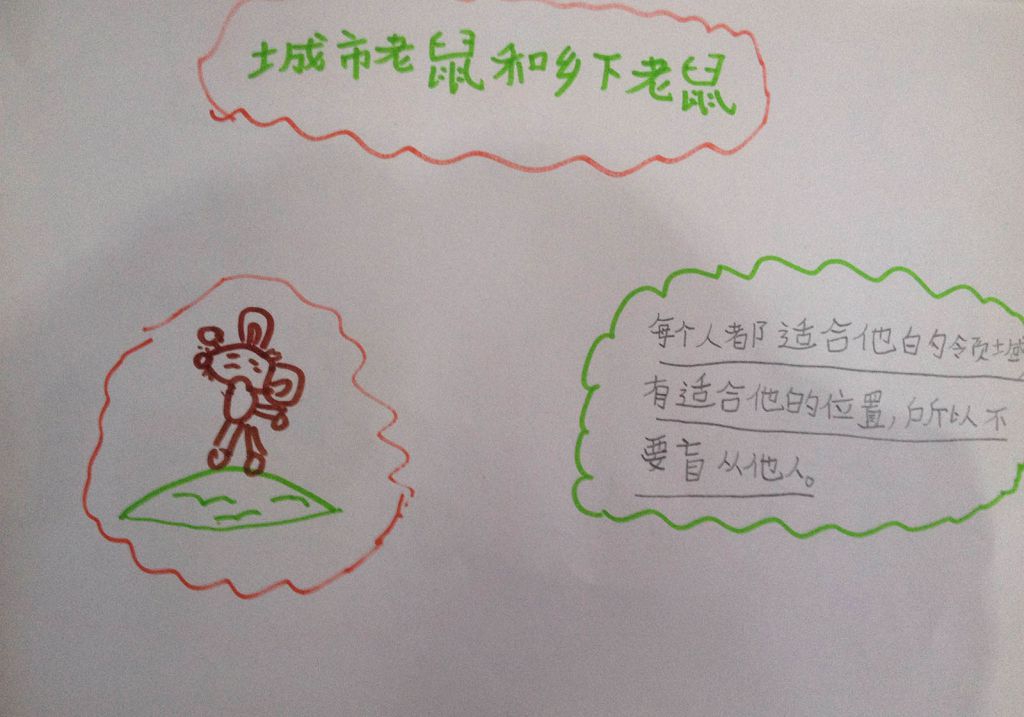 城市老鼠和乡下老鼠
每个人都适合他的领域
有适合他的位置,所以不
要盲从他人。